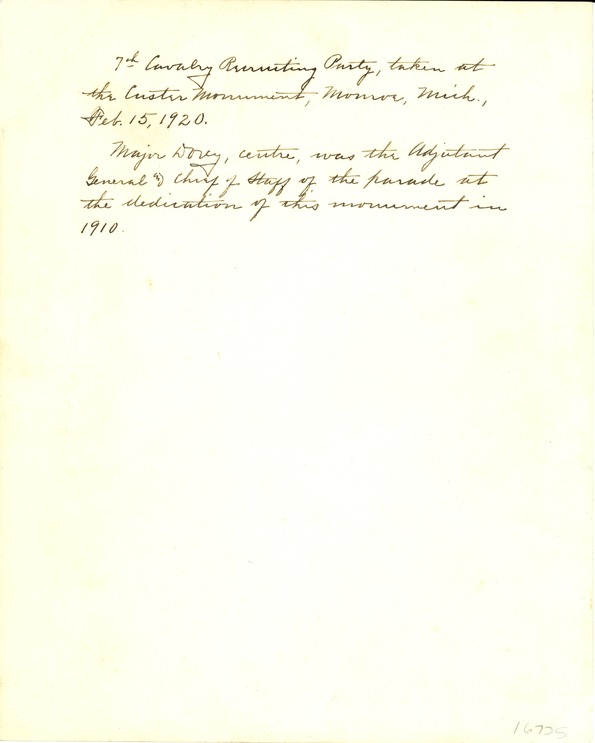 7th Cavalry Recruiting Party, taken at
the Custer Monument, Monroe, Mich.,
Feb. 15, 1920.
Major Dorey, centre, was the Adjutant
General & Chief of Staff of the parade at
the dedication of this monument in
1910.
16725